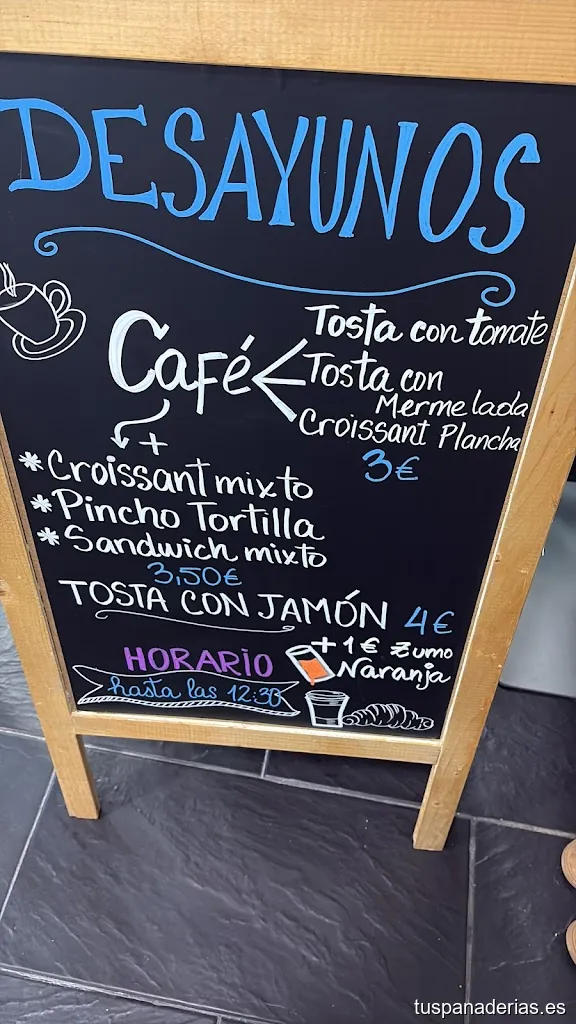 DESAYUNOS
Café
Tosta con tomate
Tosta con
Mermelada
Croissant Plancha
3€
+
* Croissant mixto
* Pincho Tortilla
* Sandwich mixto
3,50€
TOSTA CON JAMÓN 4€
+ 1€ Zumo
Naranja
HORARIO
hasta las 12:30
tuspanaderias.es